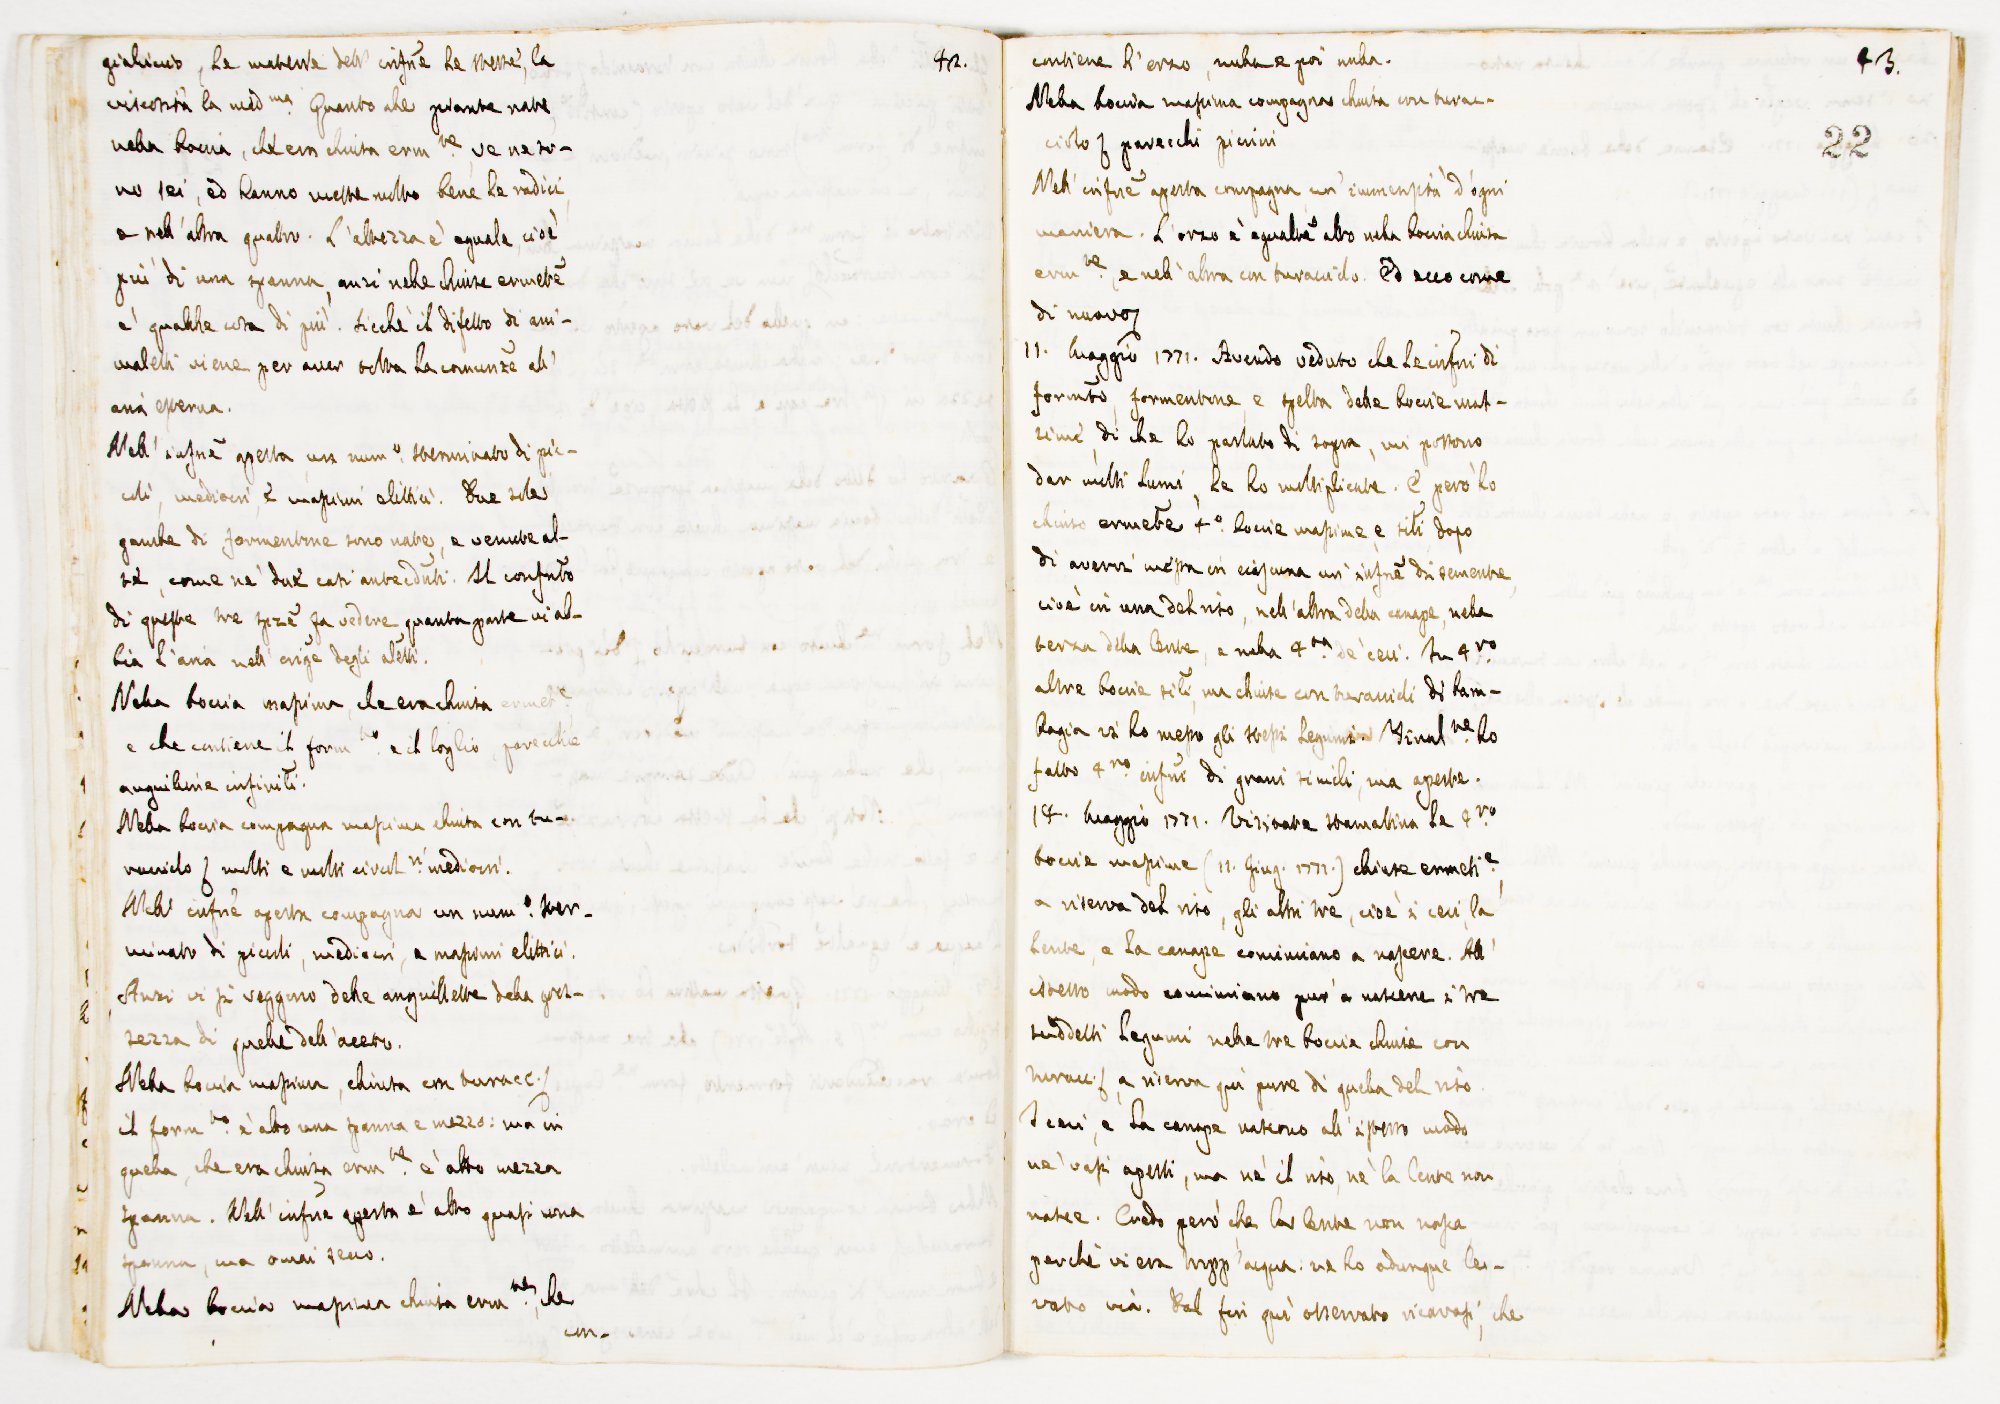 42.
gialiccio, le materie dell' infus̃e le stesse, la
viscosità la med.ma Quanto alle piante nate
nella boccia, ch'era chiusa erm.te, ve ne so-
no sei, ed hanno messe molto bene le radici,
e nell'altra quattro. L'altezza è eguale, cioè
più di una spanna, anzi nelle chiuse ermetẽ
è qualche cosa di più. Sicchè il difetto di ani-
maletti viene per aver tolta la comunz̃e all'
aria esterna.
Nell' infus̃e aperta un num.o sterminato di pic-
coli, mediocri, e massimi elittici. Due sole
gambe di formentone sono nate, e venute al-
te, come ne' due casi anteceduti. Il confrõto
di queste tre spez̃e fa vedere quanta parte vi ab-
bia l'aria nell' orig̃e degli alẽtti.
Nella boccia massima, che era chiusa ermet.e
e che contiene il form.to e il loglio, parecchie
anguilline infiniti.
Nella boccia compagna massima chiusa con tu-
racciolo molti e molti circol.ri mediocri.
Nell' infus̃e aperta compagna un num.o ster-
minato di piccoli, mediocri, e massimi elittici.
Anzi vi si veggono delle anguillette della gros-
sezza di quelle dell'aceto.
Nella boccia massima, chiusa con turacc.
il form.to è alto una spanna e mezzo: ma in
quella, che era chiusa erm.te è alto mezza
spanna. Nell' infus̃e aperta è alto quasi una
spanna, ma omai secco.
Nella boccia massima chiusa erm.te, che
con-
43.
22
contiene l'orzo, nulla e poi nulla.
Nella boccia massima compagna chiusa con turac-
ciolo parecchi piccini
Nell' infus̃e aperta compagna un' immensità d'ogni
maniera. L'orzo è egualm̃e alto nella boccia chiusa
erm.te, e nell' altra con turacciolo. Ed ecco come
di nuovo
11. Maggio 1771. Avendo veduto che le infus̃ni di
formẽto, formentone, e spelta delle boccie mas-
sime, di che ho parlato di sopra, mi possono
dar molti lumi, le ho moltiplicate. E però ho
chiuso ermetẽ 4.o boccie massime, e sili dopo
di avervi messa in ciascuna un' infus̃e di semente,
cioè in una del riso, nell'altra della canape, nella
terza della lente, e nella 4.ta de' ceci. In 4.ro
altre boccie sili, ma chiuse con turaccioli di bam-
bagia vi ho messo gli stessi legumi. Final.te ho
fatto 4.ro infusñi di grani simili, ma aperte.
14. Maggio 1771. Visitate stamattina le 4.ro
boccie massime (11. Giug. 1771.) chiuse ermeti.e
a riserva del riso, gli altri tre, cioè i ceci, la
lente, e la canape cominciano a nascere. All'
istesso modo cominciano pur' a nascere i tre
suddetti legumi nelle tre boccie chiuse con
turacc. a riserva qui pure di quella del riso.
I ceci, e la canape nascono all' istesso modo
ne' vasi aperti, ma nè il riso, nè la lente non
nasce. Credo però che la lente non nasca
perchè vi era tropp' acqua: ne ho adunque le-
vato via. Dal fin qui osservato ricavasi, che